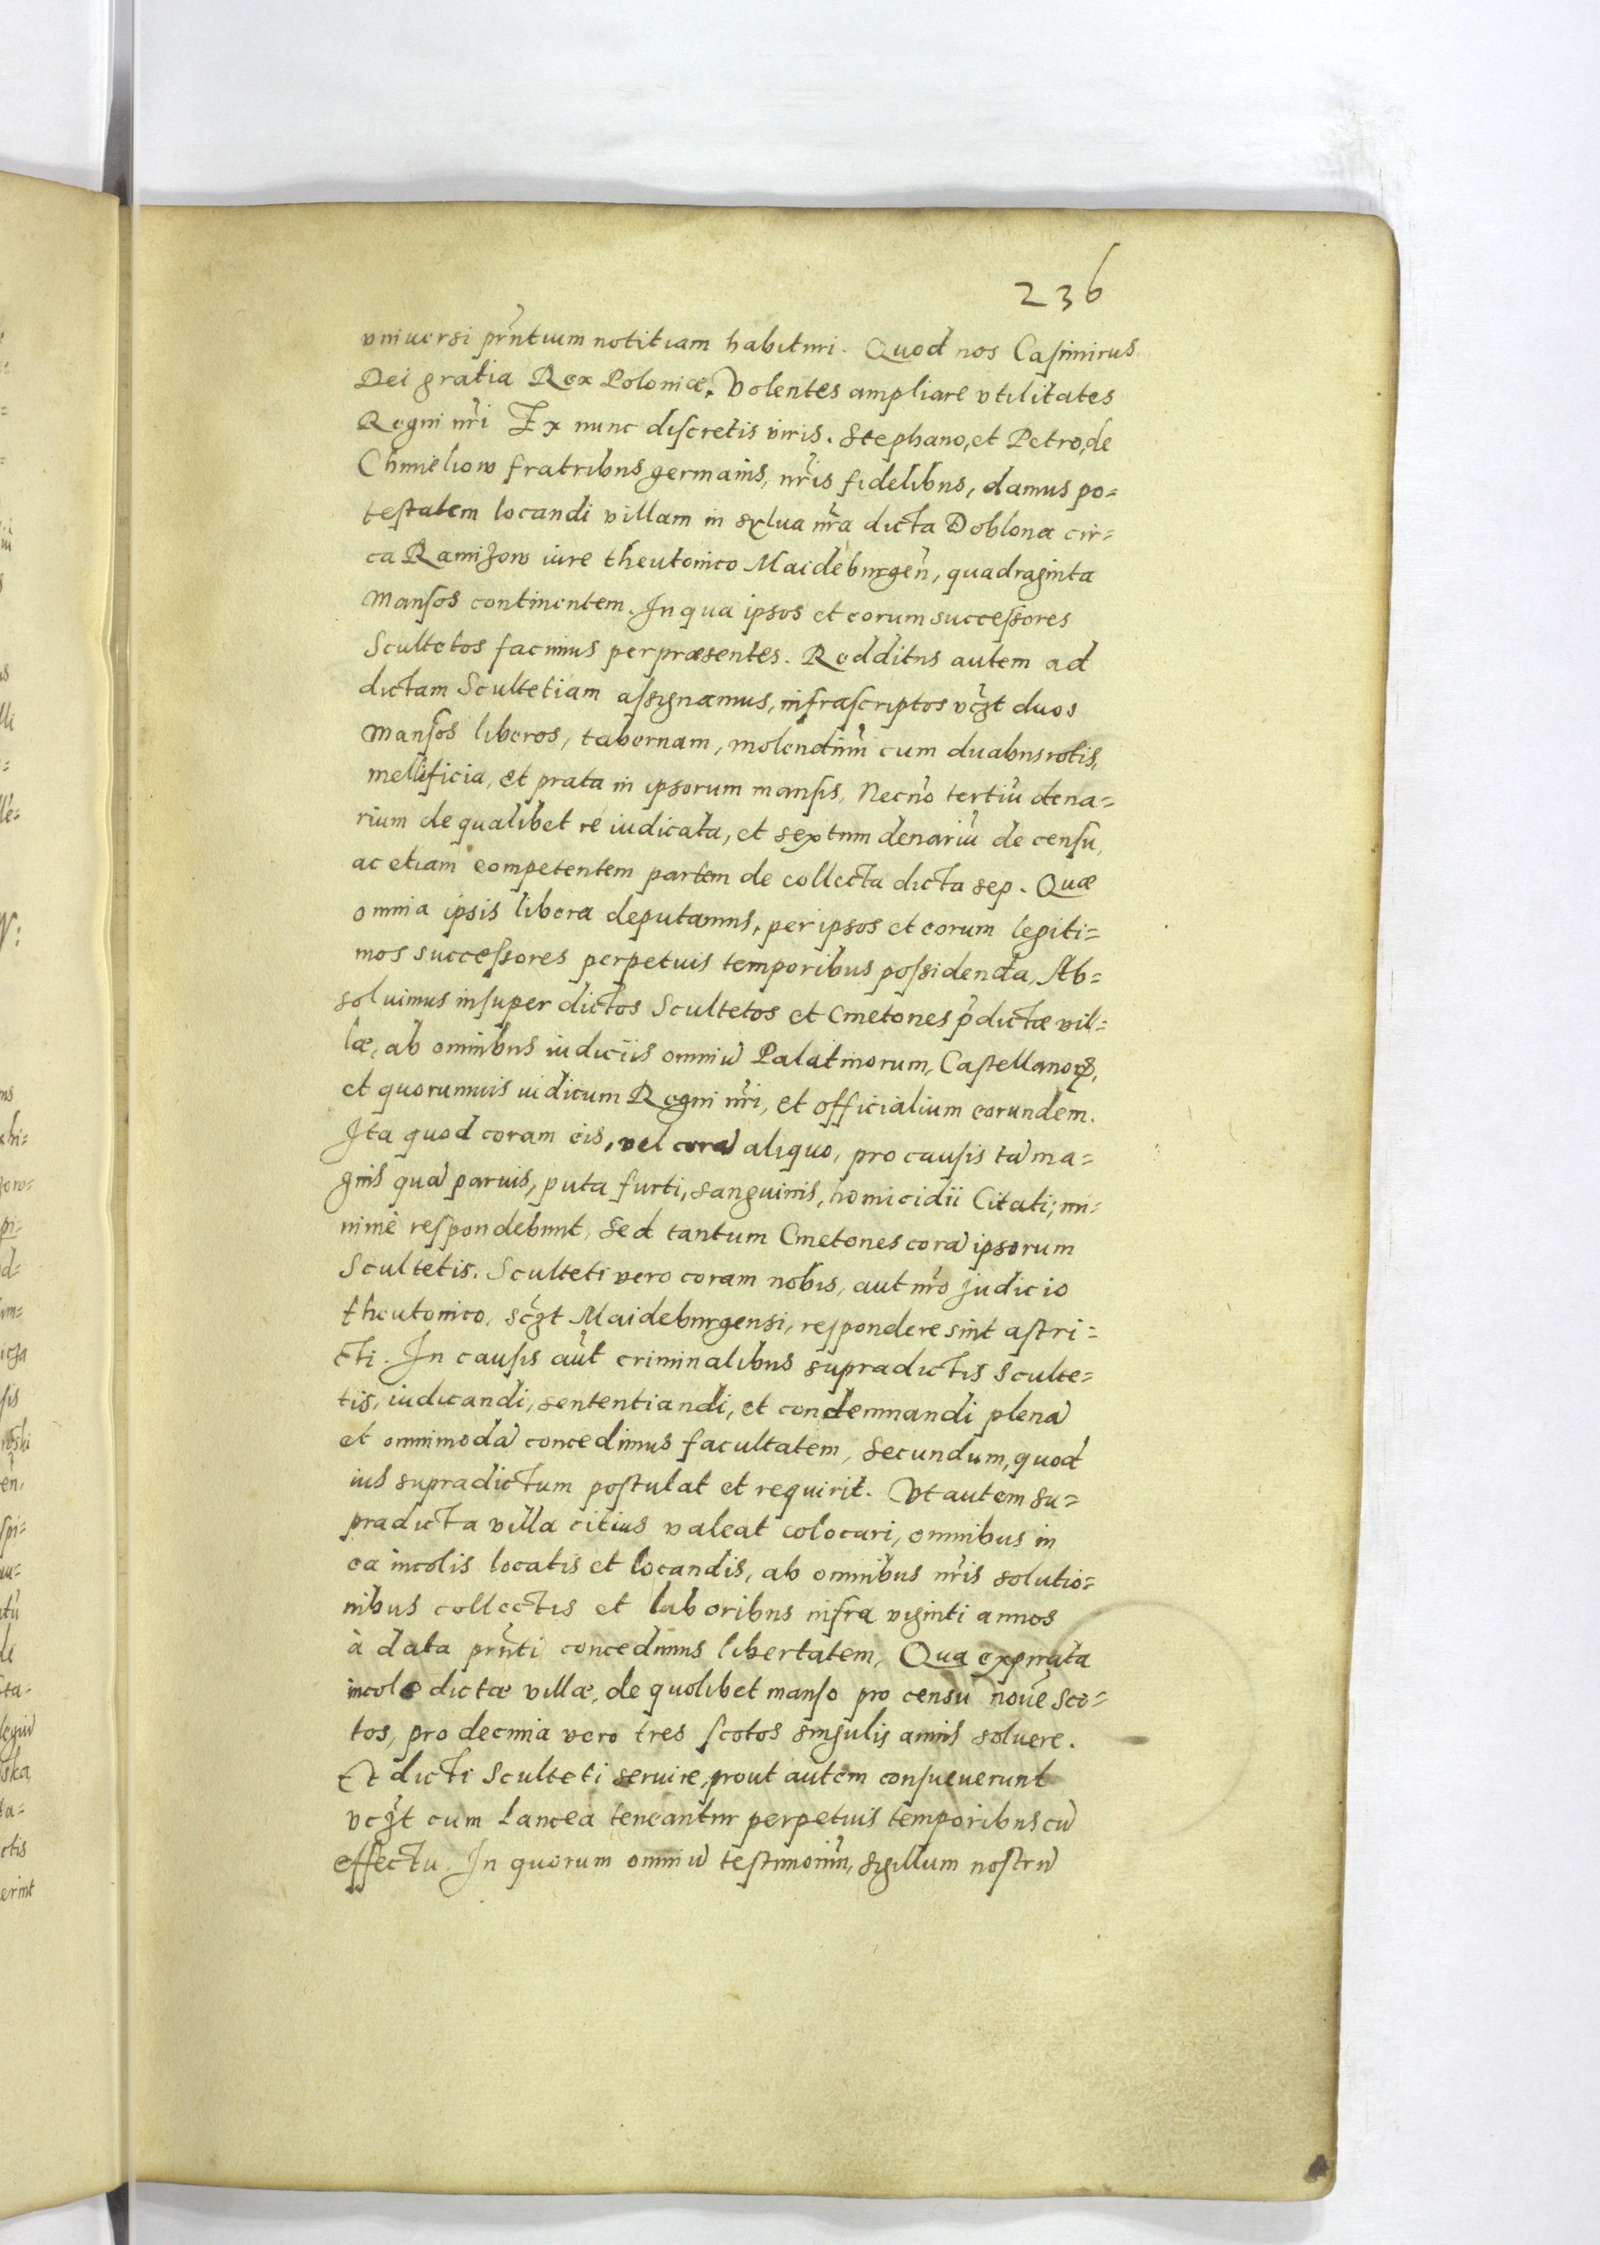 236
vniuersi prñtium notitiam habituri. Quod nos Casimirus
Dei gratia Rex Poloniæ. Volentes ampliare vtilitates
Regni nr̃i Ex nunc discretis viris. Stephano, et Petro, de
Chmieliow fratribus germanis, nr̃is fidelibus, damus po=
testatem locandi villam in sylua nr̃a dicta Doblona cir=
ca Ramizow iure theutonico Maideburgeñ, quadraginta
mansos continentem. In qua ipsos et eorum successores
Scultetos facimus per præsentes. Redditus autem ad
dictam Scultetiam assignamus, infrascriptos vczt duos
mansos liberos, tabernam, molendinũ cum duabus rotis,
mellificia, et prata in ipsorum mansis, Necnõ tertiũ dena=
rium de qualibet re iudicata, et sextum denariũ de censu,
ac etiam competentem partem de collecta dicta sep. Quæ
omnia ipsis libera deputamus, per ipsos et eorum legiti=
mos successores perpetuis temporibus possidenda, Ab=
soluimus insuper dictos Scultetos et Cmetones p̃dictæ vil=
læ, ab omnibus iudiciis omniũ Palatinorum, Castellanorꝝ,
et quorumuis iudicum Regni nr̃i, et officialium eorundem.
Ita quod coram eis, vel corã aliquo, pro causis tã ma=
gnis quã paruis, puta furti, sanguinis, homicidii Citati; mi=
nimè respondebunt, Sed tantum Cmetones corã ipsorum
Scultetis. Sculteti vero coram nobis, aut nr̃o Judicio
theutonico, sczt Maideburgensi, respondere sint astri=
cti. In causis aũt criminalibus supradictis Sculte=
tis, iudicandi, sententiandi, et condemnandi plenã
et omnimodã concedimus facultatem, Secundum, quod
ius supradictum postulat et requirit. Vt autem su=
pradicta villa citius valeat colocari, omnibus in
ea incolis locatis et locandis, ab omnibus nr̃is solutio=
nibus collectis et laboribus infra viginti annos
à data prñti concedimus libertatem, Qua expirata
incolæ dictæ villæ, de quolibet manso pro censu nouẽ sco=
tos, pro decima vero tres scotos singulis annis soluere.
Et dicti Sculteti seruire, prout autem consueuerunt
vczt cum lancea teneantur perpetuis temporibus cũ
effectu. In quorum omniũ testimoniũ, Sigillum nostrũ